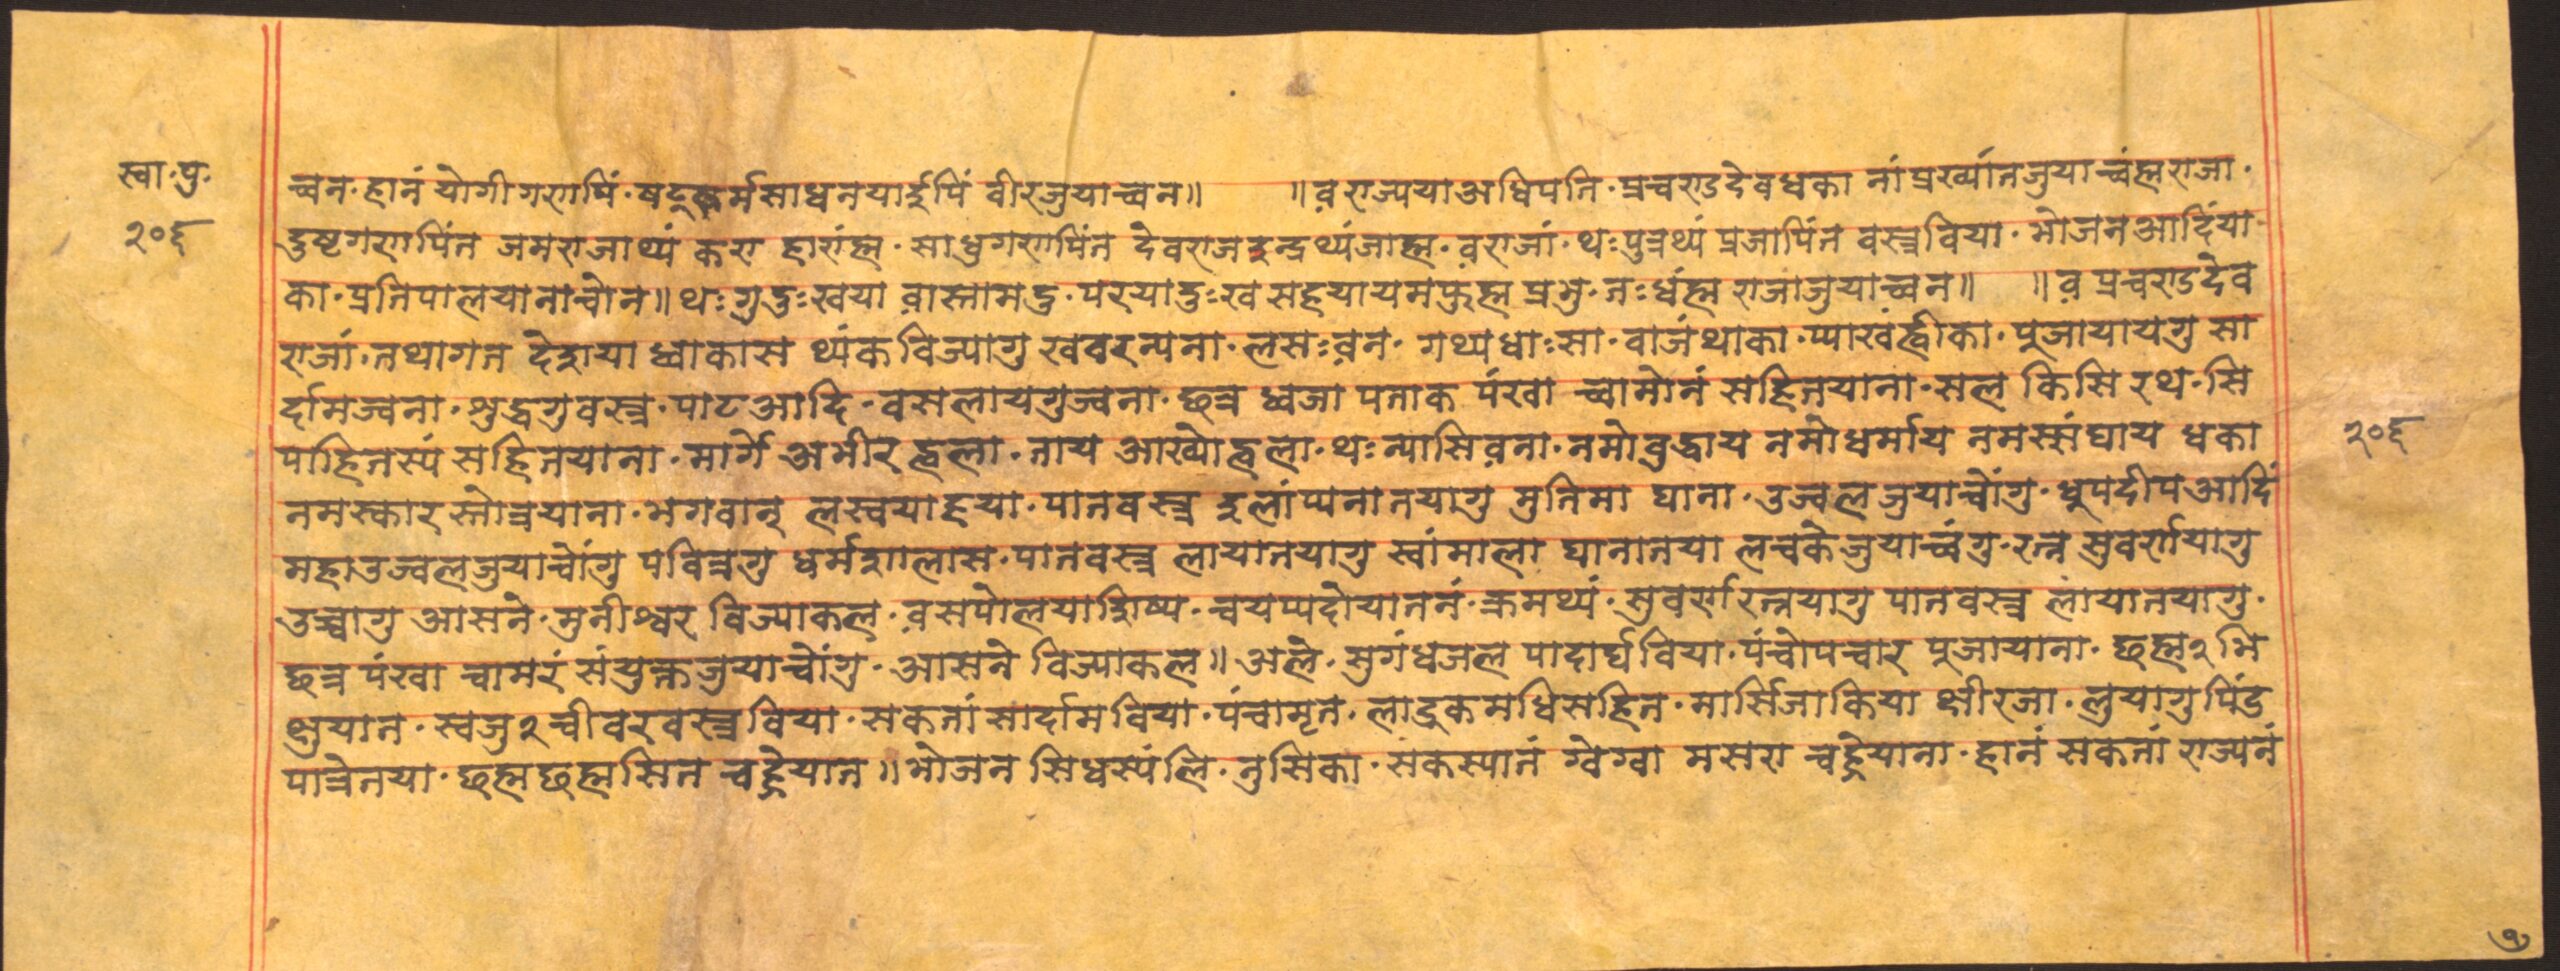 स्वा·पु·
२०६
च्वन·हानं योगी गणपिं·षट्कर्मसाधनयाईपिं वीरजुयाच्वन॥ ॥व़ राज्यया अधिपति·प्रचण्डदेव धका नां प्रख्यातजुया च्वंह्म राजा·
दुष्टगणपिंत जमराजाथ्यं करा हारांह्म·साधुगणपिंत देवराजइन्द्रथ्यंजाह्म·व़राजां·थःपुत्रथ्यं प्रजापिंत वस्त्रविया·भोजनआदिंया
का·प्रतिपालयानाचोन॥थःगुदुःखया व़ास्तामदु·परयादुःख सहयायमफुह्म प्रभु·जःधंह्म राजाजुयाच्वन॥ ॥व़ प्रचण्डदेव
राजां·तथागत देशया ध्वाकास थ्यंक विज्यागु खवरन्यना·लसःव़न·गथ्यधाःसा·वाजंथाका·प्याखंह्वीका·पुजायायगु सा
र्दामज्वना·शुद्धगुवस्त्र·पाटआदि·वसलायगुज्वना·छत्र ध्वजा पताक पंखा च्वामोनं सहितयाना·सल किसि रथ·सि
पाहितस्यं सहितयाना·मार्गे अभीर ह्वला·ताय आख्योह्वला·थःन्यासिव़ना·नमोबुद्धाय नमोधर्माय नमस्संघाय धका
नमस्कार स्तोत्रयाना·भगवान् लस्वयाहया·पातवस्त्र इलांप्यनातयागु मुतिमा घाना·उज्वलजुयाचोंगु·धुपदीपआदिं
महाउज्वलजुयाचोंगु पवित्रगु धर्मशालास·पातवस्त्र लायातयागु स्वांमाला घानातया लचकेजुयाच्वंगु·रत्न सुवर्णयागु
उच्चागु आसने·मुनीश्वर विज्याकल·व़सपोलयाशिष्य·च्वयप्यदोयाननं·क्रमथ्यं·सुवर्णरत्नयागु पातवस्त्र लायातयागु·
छत्र पंखा चामरं संयुक्तजुयाचोंगु·आसने विज्याकल॥अले·सुगंधजल पादार्घविया·पंचोपचार पुजायाना·छह्म२भि
क्षुयात·स्वजु२चीवरवस्त्रविया·सकतां सार्दामविया·पंचामृत·लाडुकमधिसहित·मार्सिजाकिया क्षीरजा·लुयागुपिंड
पात्रेतया·छह्मछह्मसित चह्रेयात॥भोजन सिधस्यंलि·तुसिका·सकस्यानं ग्वेग्वा मसरा चह्रेयाना·हानं सकतां राज्यनं
२०६